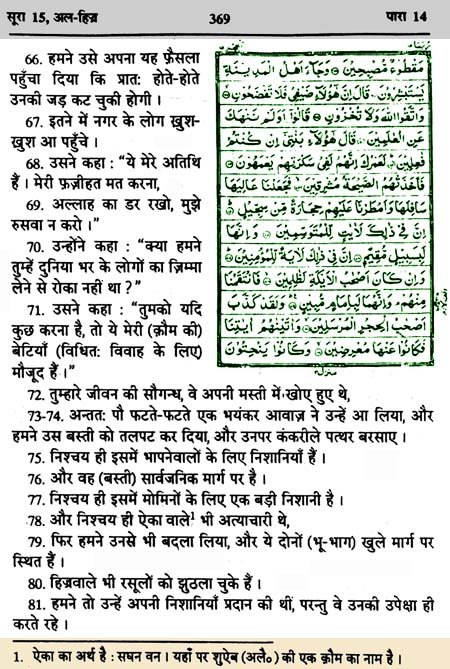 सूरा 15, अल-हिज्र 369 पारा 14
66. हमने उसे अपना यह फ़ैसला
पहुँचा दिया कि प्रात: होते-होते
उनकी जड़ कट चुकी होगी ।
67. इतने में नगर के लोग ख़ुश-
ख़ुश आ पहुँचे ।
68. उसने कहा : “ये मेरे अतिथि
हैं । मेरी फ़ज़ीहत मत करना,
69. अल्लाह का डर रखो, मुझे
रुसवा न करो ।”
70. उन्होंने कहा : “क्या हमने
तुम्हें दुनिया भर के लोगों का ज़िम्मा
लेने से रोका नहीं था ?”
71. उसने कहा : “तुमको यदि
कुछ करना है, तो ये मेरी (क़ौम की)
बेटियाँ (विधित: विवाह के लिए)
मौजूद हैं ।”
مَقْطُوعٌ مُّصْبِحِينَ ۞ وَجَاءَ أَهْلُ الْمَدِينَةِ
يَسْتَبْشِرُونَ ۞ قَالَ إِنَّ هَٰؤُلَاءِ ضَيْفِي فَلَا تَفْضَحُونِ ۞
وَاتَّقُوا اللَّهَ وَلَا تُخْزُونِ ۞ قَالُوا أَوَلَمْ نَنْهَكَ
عَنِ الْعَٰلَمِينَ ۞ قَالَ هَٰؤُلَاءِ بَنَٰتِي إِن كُنتُمْ
فَٰعِلِينَ ۞ لَعَمْرُكَ إِنَّهُمْ لَفِي سَكْرَتِهِمْ يَعْمَهُونَ ۞
فَأَخَذَتْهُمُ الصَّيْحَةُ مُشْرِقِينَ ۞ فَجَعَلْنَا عَالِيَهَا
سَافِلَهَا وَأَمْطَرْنَا عَلَيْهِمْ حِجَارَةً مِّن سِجِّيلٍ ۞
إِنَّ فِي ذَٰلِكَ لَآيَٰتٍ لِّلْمُتَوَسِّمِينَ ۞ وَإِنَّهَا
لَبِسَبِيلٍ مُّقِيمٍ ۞ إِنَّ فِي ذَٰلِكَ لَآيَةً لِّلْمُؤْمِنِينَ ۞
وَإِن كَانَ أَصْحَٰبُ الْأَيْكَةِ لَظَٰلِمِينَ ۞ فَانتَقَمْنَا
مِنْهُمْ وَإِنَّهُمَا لَبِإِمَامٍ مُّبِينٍ ۞ وَلَقَدْ كَذَّبَ
أَصْحَٰبُ الْحِجْرِ الْمُرْسَلِينَ ۞ وَآتَيْنَٰهُمْ آيَٰتِنَا
فَكَانُوا عَنْهَا مُعْرِضِينَ ۞ وَكَانُوا يَنْحِتُونَ
منزل ۳
72. तुम्हारे जीवन की सौगन्ध, वे अपनी मस्ती में खोए हुए थे,
73-74. अन्तत: पौ फटते-फटते एक भयंकर आवाज़ ने उन्हें आ लिया, और
हमने उस बस्ती को तलपट कर दिया, और उनपर कंकरीले पत्थर बरसाए ।
75. निश्चय ही इसमें भापनेवालों के लिए निशानियाँ हैं ।
76. और वह (बस्ती) सार्वजनिक मार्ग पर है ।
77. निश्चय ही इसमें मोमिनों के लिए एक बड़ी निशानी है ।
78. और निश्चय ही ऐका वाले¹ भी अत्याचारी थे,
79. फिर हमने उनसे भी बदला लिया, और ये दोनों (भू-भाग) खुले मार्ग पर
स्थित हैं ।
80. हिज्रवाले भी रसूलों को झुठला चुके हैं ।
81. हमने तो उन्हें अपनी निशानियाँ प्रदान की थीं, परन्तु वे उनकी उपेक्षा ही
करते रहे ।
1. ऐका का अर्थ है : सघन वन । यहाँ पर शुऐब (अलै॰) की एक क़ौम का नाम है ।